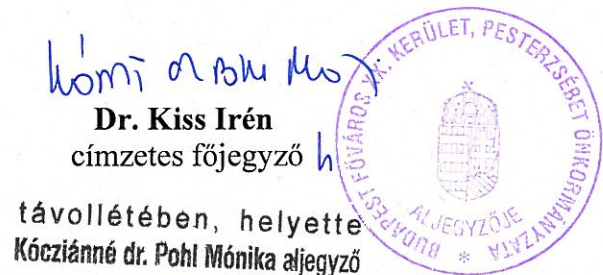 Dr. Kiss Irén
címzetes főjegyző h
távollétében, helyette
Kócziánné dr. Pohl Mónika aljegyző
BUDAPEST FŐVÁROS XX. KERÜLET, PESTERZSÉBET ÖNKORMÁNYZATA
ALJEGYZŐJE